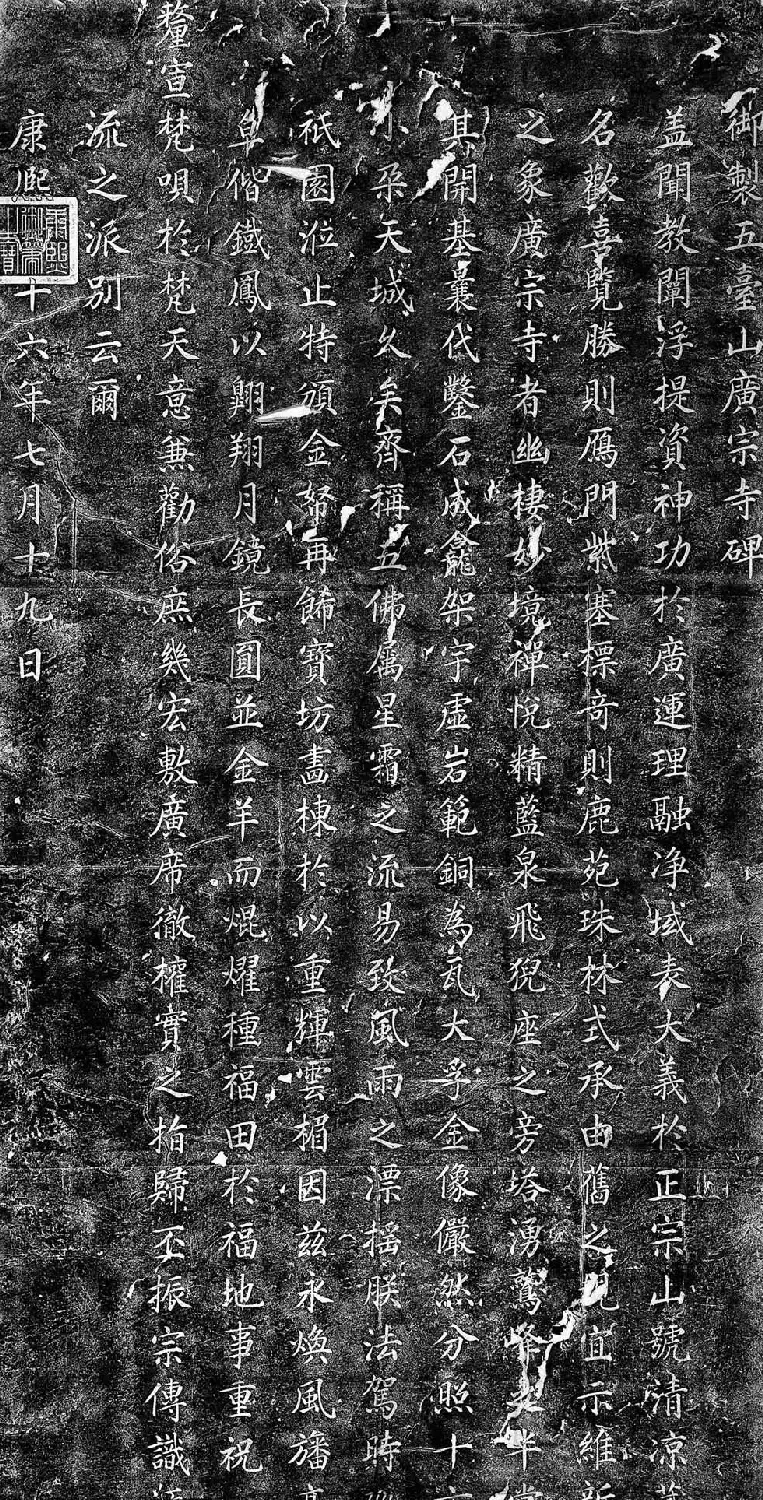 御製五臺山廣宗寺碑
盖聞教闡浮提資神功於廣運理融净域表大義於正宗山號清凉
名歡喜覽勝則鴈門紫塞標奇則鹿苑珠林式承由舊之見宜示維新
之象廣宗寺者幽棲妙境禪悅精藍泉飛猊座之旁塔湧鷲峰半
其開基曩代鑿石成龕架宇虛岩範銅為瓦大孚金像儼然分照十六
朶天城久矣齊稱五佛屬星霜之流易致風雨之漂摇朕法駕時
祇園涖止特頒金帑再餙寶坊畵棟於以重輝雲楣因茲永煥風旛
阜偕鐵鳳以翺翔月鏡長圓並金羊而焜燿種福田於福地事重祝
釐宣梵唄於梵天意兼勸俗庶幾宏敷廣席徹權實之指歸丕振宗傳識
流之派別云爾
康熙十六年七月十九日